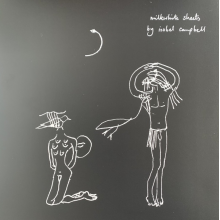 milkwhite sheets
by isobel campbell